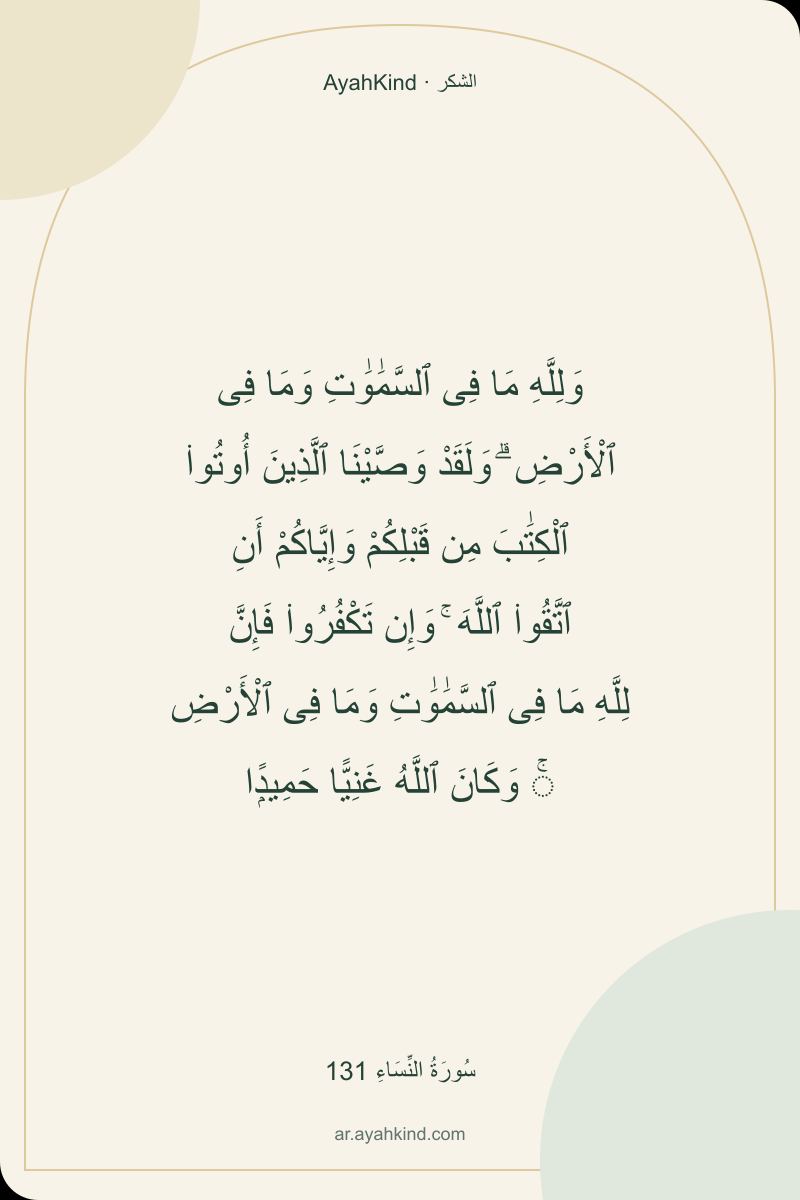 AyahKind · الشكر
وَلِلَّهِ مَا فِى ٱلسَّمَٰوَٰتِ وَمَا فِى
ٱلْأَرْضِ ۗ وَلَقَدْ وَصَّيْنَا ٱلَّذِينَ أُوتُوا۟
ٱلْكِتَٰبَ مِن قَبْلِكُمْ وَإِيَّاكُمْ أَنِ
ٱتَّقُوا۟ ٱللَّهَ ۚ وَإِن تَكْفُرُوا۟ فَإِنَّ
لِلَّهِ مَا فِى ٱلسَّمَٰوَٰتِ وَمَا فِى ٱلْأَرْضِ
ۚ وَكَانَ ٱللَّهُ غَنِيًّا حَمِيدًۭا
سُورَةُ النِّسَاءِ 131
ar.ayahkind.com